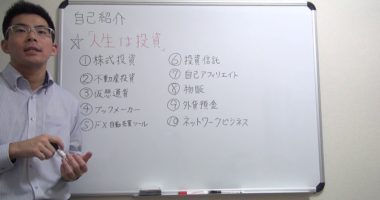 自己紹介
☆「人生は投資」
①株式投資
②不動産投資
③仮想通貨
④ブックメーカー
⑤FX自動売買ツール
⑥投資信託
⑦自己アフィリエイト
⑧物販
⑨外貨預金
⑩ネットワークビジネス